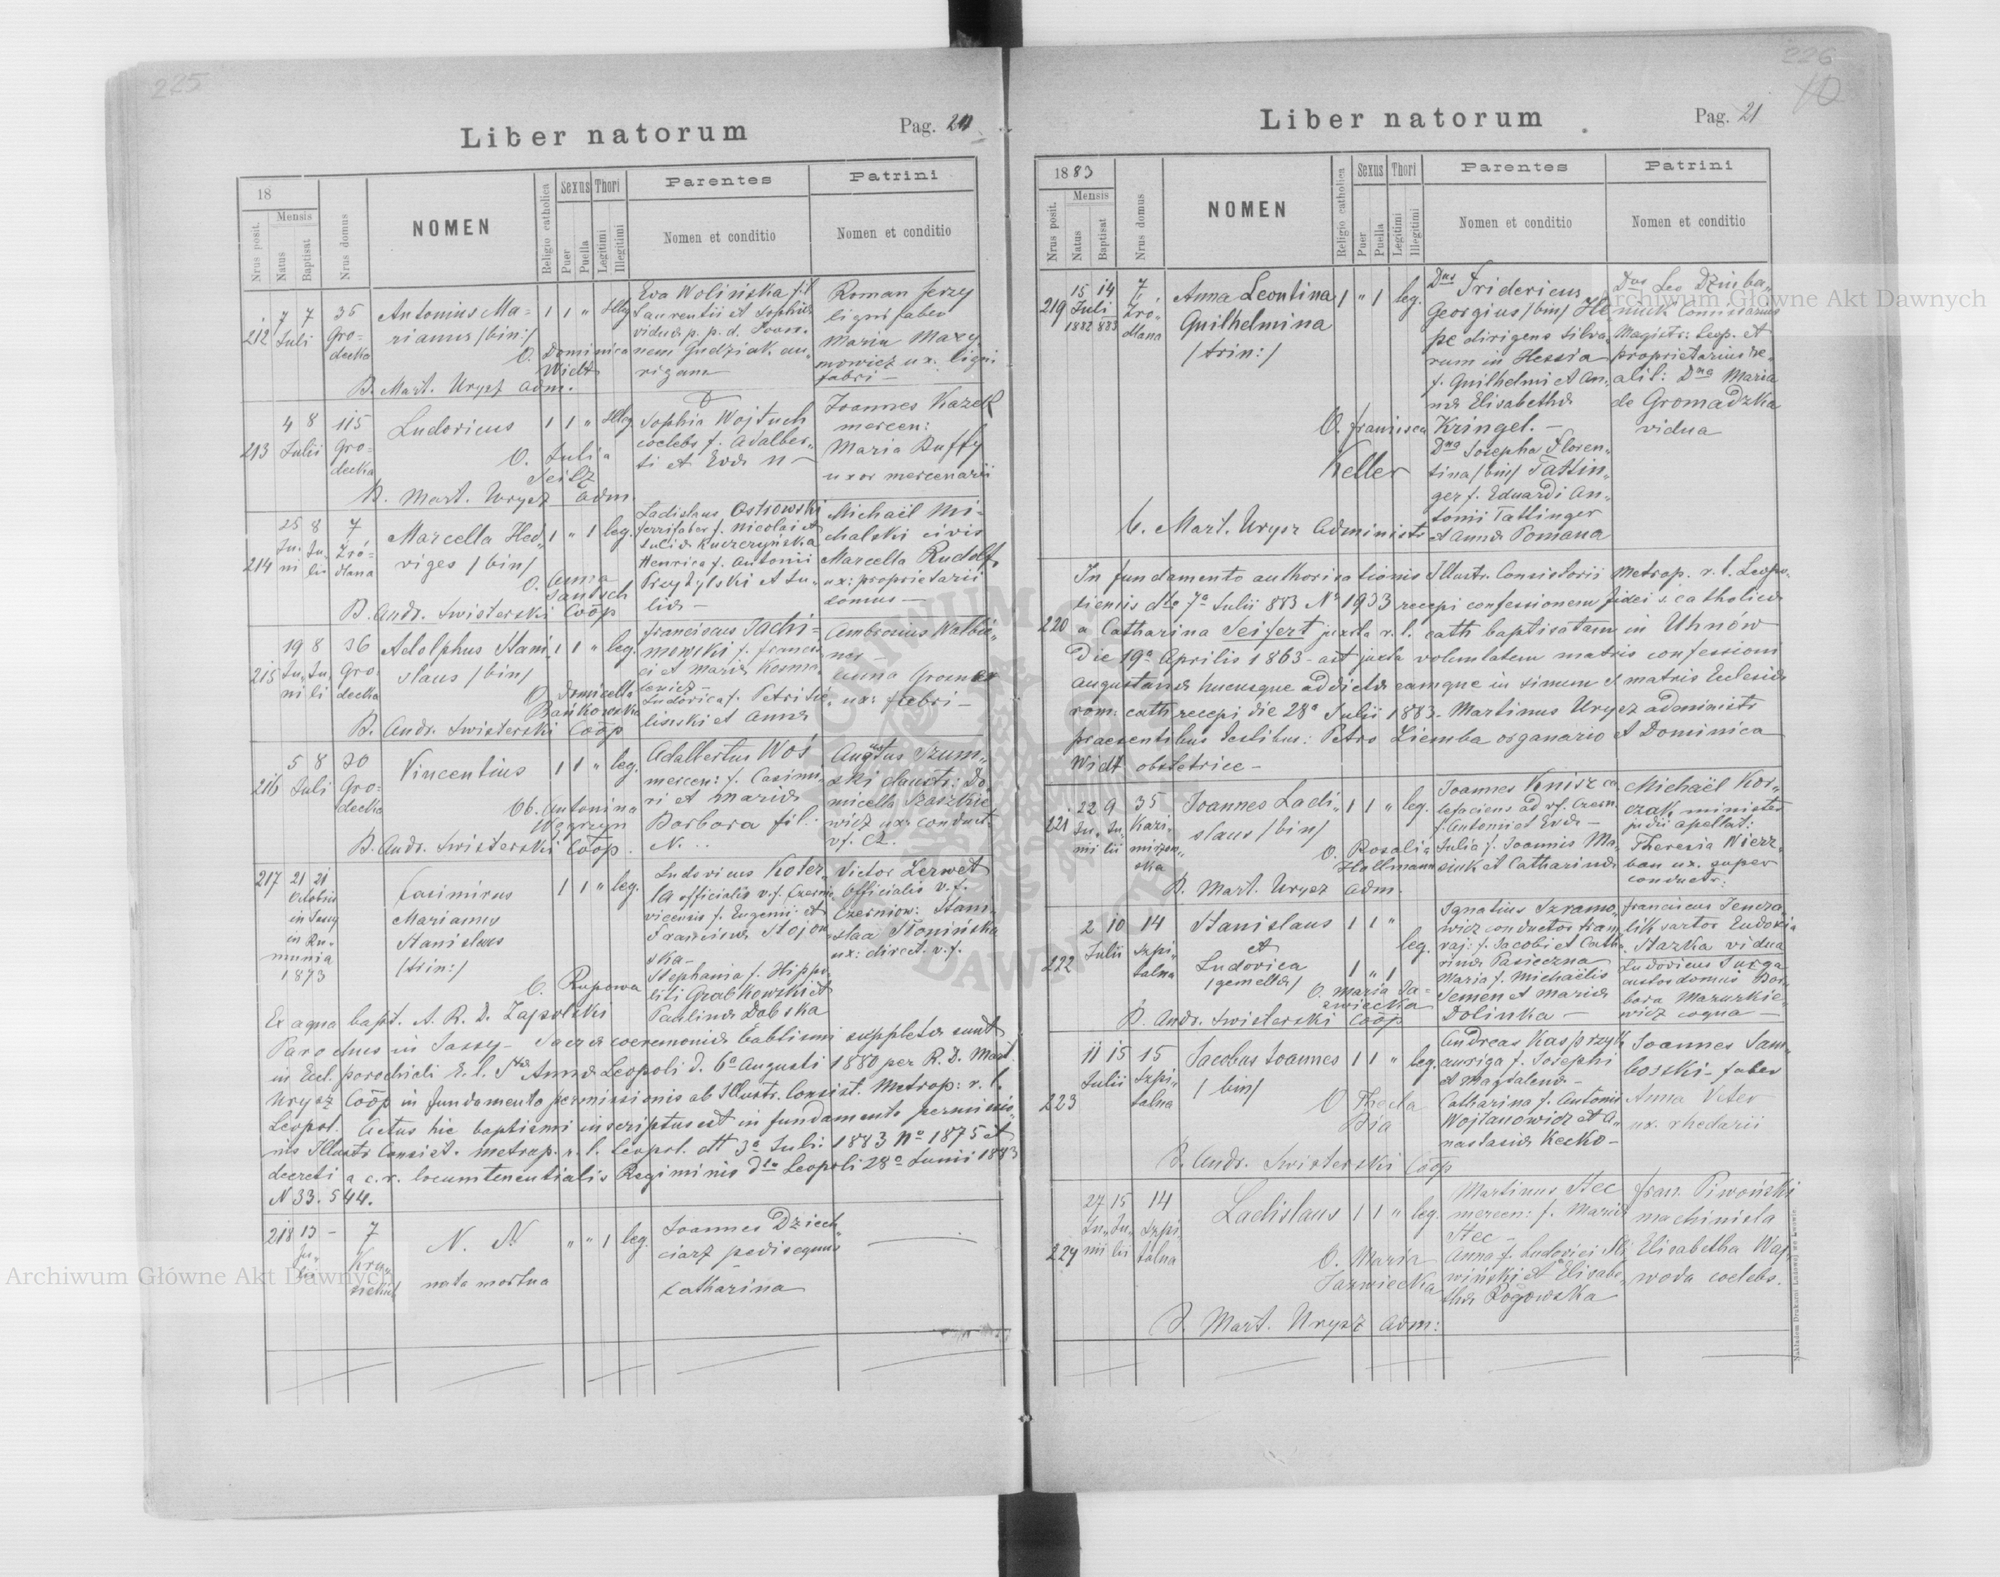 225
Liber natorum
Pag. 20
18
Nrus posit.
Mensis
Natus
Baptisat
Nrus domus
NOMEN
Religio catholica
Sexus
Puer
Puella
Thori
Legitimi
Illegitimi
Parentes
Nomen et conditio
Patrini
Nomen et conditio
212
7 7
Juli
35
Gro=
decka
Antonius Ma=
rianus /bin/
O. Dominica
Widt
B. Mart. Urysz adm.
1 1 " Illeg
Eva Wolińska fil
Laurentii et Sophiæ
vidua p. p. d. Joan=
nem Gudziak au=
rigam
Roman Jerzy
ligni faber
Maria Maxy
mowicz ux. ligni
fabri —
213
4 8
Julii
115
Gro=
decka
Ludovicus
O. Julia
Seitz
B. Mart. Urysz adm.
1 1 " Illeg
Sophia Wojtuch
coelebs f. Adalber=
ti et Evæ N —
Joannes Kazek
mercen:
Maria Duffy
uxor mercenarii
214
25 8
Ju= Ju=
ni lii
7
Zró=
dlana
Marcella Hed=
viges /bin/
O. Anna
B. Andr. Swisterski Coop
1 " 1 leg.
Ladislaus Ostrowski
ferrifaber f. Nicolai et
Juliæ Kuczczyńska
Henrica f. Antonii
Przybylski et Ju=
liæ —
Michaël Mi=
chalski civis
Marcella Rudolf
ux: proprietarii
domus —
215
19 8
Ju= Ju=
ni li
36
Gro
decka
Adolphus Stani
slaus /bin/
O. Domicella
Bańkowska
B. Andr. Swisterski Coop
1 1 " leg.
Franciscus Jachi=
mowski f. Francis
ci et Mariæ
Ludovica f. Petri
liswski et Annæ
Ambrosius
Anna Groner
ux: fabri —
216
5 8
Juli
30
Gro=
decka
Vincentius
Ob. Antonina
Węgrzyn
B. Andr. Swisterski Coop.
1 1 " leg.
Adalbertus Woś
mercen: f. Casimi=
ri et Mariæ
Barbara fil.
N. ..
Augustus Szum=
ski claustr: Do
micella Szaszkie
wicz ux: conduct.
vf. Cz.
217
21 21
Octobris
in Jassy
in Ru=
munia
1873
Casimirus
Marianus
Stanislaus
/trin:/
O. Rupowa
1 1 " leg.
Ludovicus Koter
la officialis v.f. Czernio
vicensis f. Eugenii et
Franciscæ Stojow
ska —
Stephania f. Hippo=
liti Grabkowski et
Paulinæ Dabska
Victor Zerwet
officialis v.f.
Czerniow: Stani=
slaa Słonińska
ux: direct. v.f.
Ex aqua bapt. A. R. D. Zapolski
Parochus in Jassy — Sacræ coeremoniæ babtismi suppletæ sunt
in Eccl. parochiali r. l. Stæ Annæ Leopoli d. 6a Augusti 1880 per R. D. Mart.
Urysz Coop in fundamento permissionis ab Illustr. Consist. Metrop: r. l.
Leopol. Actus hic baptismi inscriptus est in fundamento permissio=
nis Illustr Consist. Metrop. r. l. Leopol. dtt 3a Juli: 1883 No 1875 et
decreti a c. r. locumtenentialis Regiminis dto Leopoli 28a Junii 1883
N 33.544.
218
13 —
Ju=
lii
7
N. N.
nata mortua
" " 1 leg.
Joannes Dziech
ciarz pedisequus
Catharina
226
10
Liber natorum
Pag. 21
1883
Nrus posit.
Mensis
Natus
Baptisat
Nrus domus
NOMEN
Religio catholica
Sexus
Puer
Puella
Thori
Legitimi
Illegitimi
Parentes
Nomen et conditio
Patrini
Nomen et conditio
219
15 14
Juli
1882 883
7
Zró=
dlana
Anna Leontina
Guilhelmina
/trin:/
O. Francisca
Keller
C. Mart. Urysz Administr
1 " 1 leg.
Dnus Fridericus
Georgius /bin/ He
pe dirigens silva
rum in Hessia
f. Guilhelmi et An=
næ Elisabethæ
Kringel. —
Dna Josepha Floren=
tina /bin/ Tattin=
ger f. Eduardi An=
tonii Tattinger
et Annæ Pomana
Dnus Leo Dzuba=
niuk Comissarius
Magistr: Leop. et
proprietarius re=
alit: Dna Maria
de Gromadzka
vidua
220
In fundamento authorisationis Illustr. Consistorii Metrop. r. l. Leopo=
liensis dto 7a Julii 883 No 1933 recepi confessionem fidei s. catholicæ
a Catharina Seifert juxta r. l. cath baptisatam in Uhnów
die 19a Aprilis 1863 — ast juxta voluntatem matris confessioni
augustanæ hucusque addictæ eamque in sinum S matris Eclesiæ
rom: cath recepi die 28a Julii 1883 — Martinus Urysz administr
praesentibus testibus: Petro Ziemba organario et Dominica
Widt obstetrice —
221
22 9
Ju= Ju=
nii lii
35
Kazi=
mirzow=
ska
Joannes Ladi=
slaus /bin/
O. Rosalia
Hollmann
B. Mart. Urysz adm.
1 1 " leg.
Joannes Knisz ca
lefaciens ad vf. Czern.
f. Antonii et Evæ —
Julia f. Joannis Ma
siuk et Catharinæ
Michaël Kor=
czak minister
judii apellat:
Theresia Wierz=
ban ux. super
conductr:
222
2 10
Julii
14
Szpi=
talna
Stanislaus
et
Ludovica
/gemelli/
O. Maria Ja=
zwiecka
B. Andr. Swisterski Coop
1 1 "
leg.
1 " 1
Ignatius Szramo=
wicz conductor tram
raj: f. Jacobi et Cath=
rinæ Pasieczna
Maria f. Michaëlis
Semen et Mariæ
Dolinka —
Franciscus Jencza
lik sartor Eudoxia
Stazka vidua
Ludovicus Turga
custos domus Bar=
bara Mazurkie=
wicz cogna —
223
11 15
Julii
15
Szpi=
talna
Jacobus Joannes
/bin/
O Thecla
Bia
B. Andr. Swisterski Coop
1 1 " leg.
Andreas Kasprzyk
auriga f. Josephi
et Magdalenæ —
Catharina f. Antonii
Wojtanowicz et A=
nastasiæ Kecko —
Joannes Sam=
borski — faber
Anna Veter
ux. rhedarii
224
27 15
Ju= Ju=
nii lii
14
Szpi
talna
Ladislaus
O. Maria
Jazwiecka
B. Mart. Urysz adm:
1 1 " leg.
Martinus Stec
mercen: f. Mariæ
Stec —
Anna f. Ludovici Sli
wiński et Elisabe=
thæ Rogowska
Fran. Piwoński
machinista
Elisabetha Waj
woda coelebs.
Nakładem Drukarni Ludowej we Lwowie.
Archiwum Główne Akt Dawnych
Archiwum Główne Akt Dawnych
ARCHIWUM GŁÓWNE AKT DAWNYCH